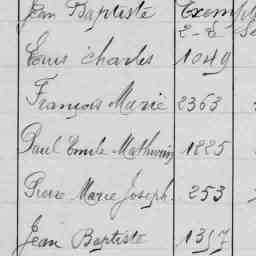 Jean Baptiste Exempt
Louis Charles 1049
François Marie 2363
Paul Emile Mathurin 1825
Pierre Marie Joseph 253
Jean Baptiste 1357